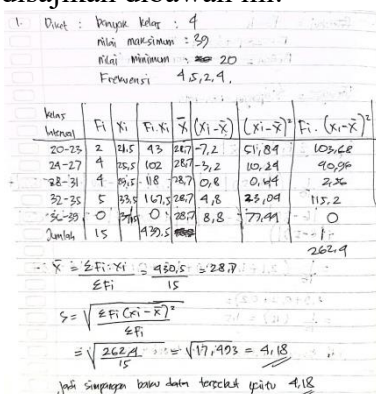 disajikan dibawah ini.
1. Diket : banyak kelas : 4
nilai maksimum = 39
nilai minimum = 20
Frekuensi 4,5,2,4.
kelas Interval Fi Xi Fi.Xi X̄ (Xi-X̄) (Xi-X̄)² Fi.(Xi-X̄)²
20-23 2 21,5 43 28,7 -7,2 51,84 103,68
24-27 4 25,5 102 28,7 -3,2 10,24 40,96
28-31 4 29,5 118 28,7 0,8 0,64 2,56
32-35 5 33,5 167,5 28,7 4,8 23,04 115,2
36-39 0 37,5 0 28,7 8,8 77,44 0
Jumlah 15 430,5
262,4
X̄ = ΣFi.Xi / ΣFi = 430,5 / 15 = 28,7
S = √ΣFi(Xi-X̄)² / ΣFi
= √262,4 / 15 = √17,493 = 4,18
Jadi simpangan baku data tersebut yaitu 4,18